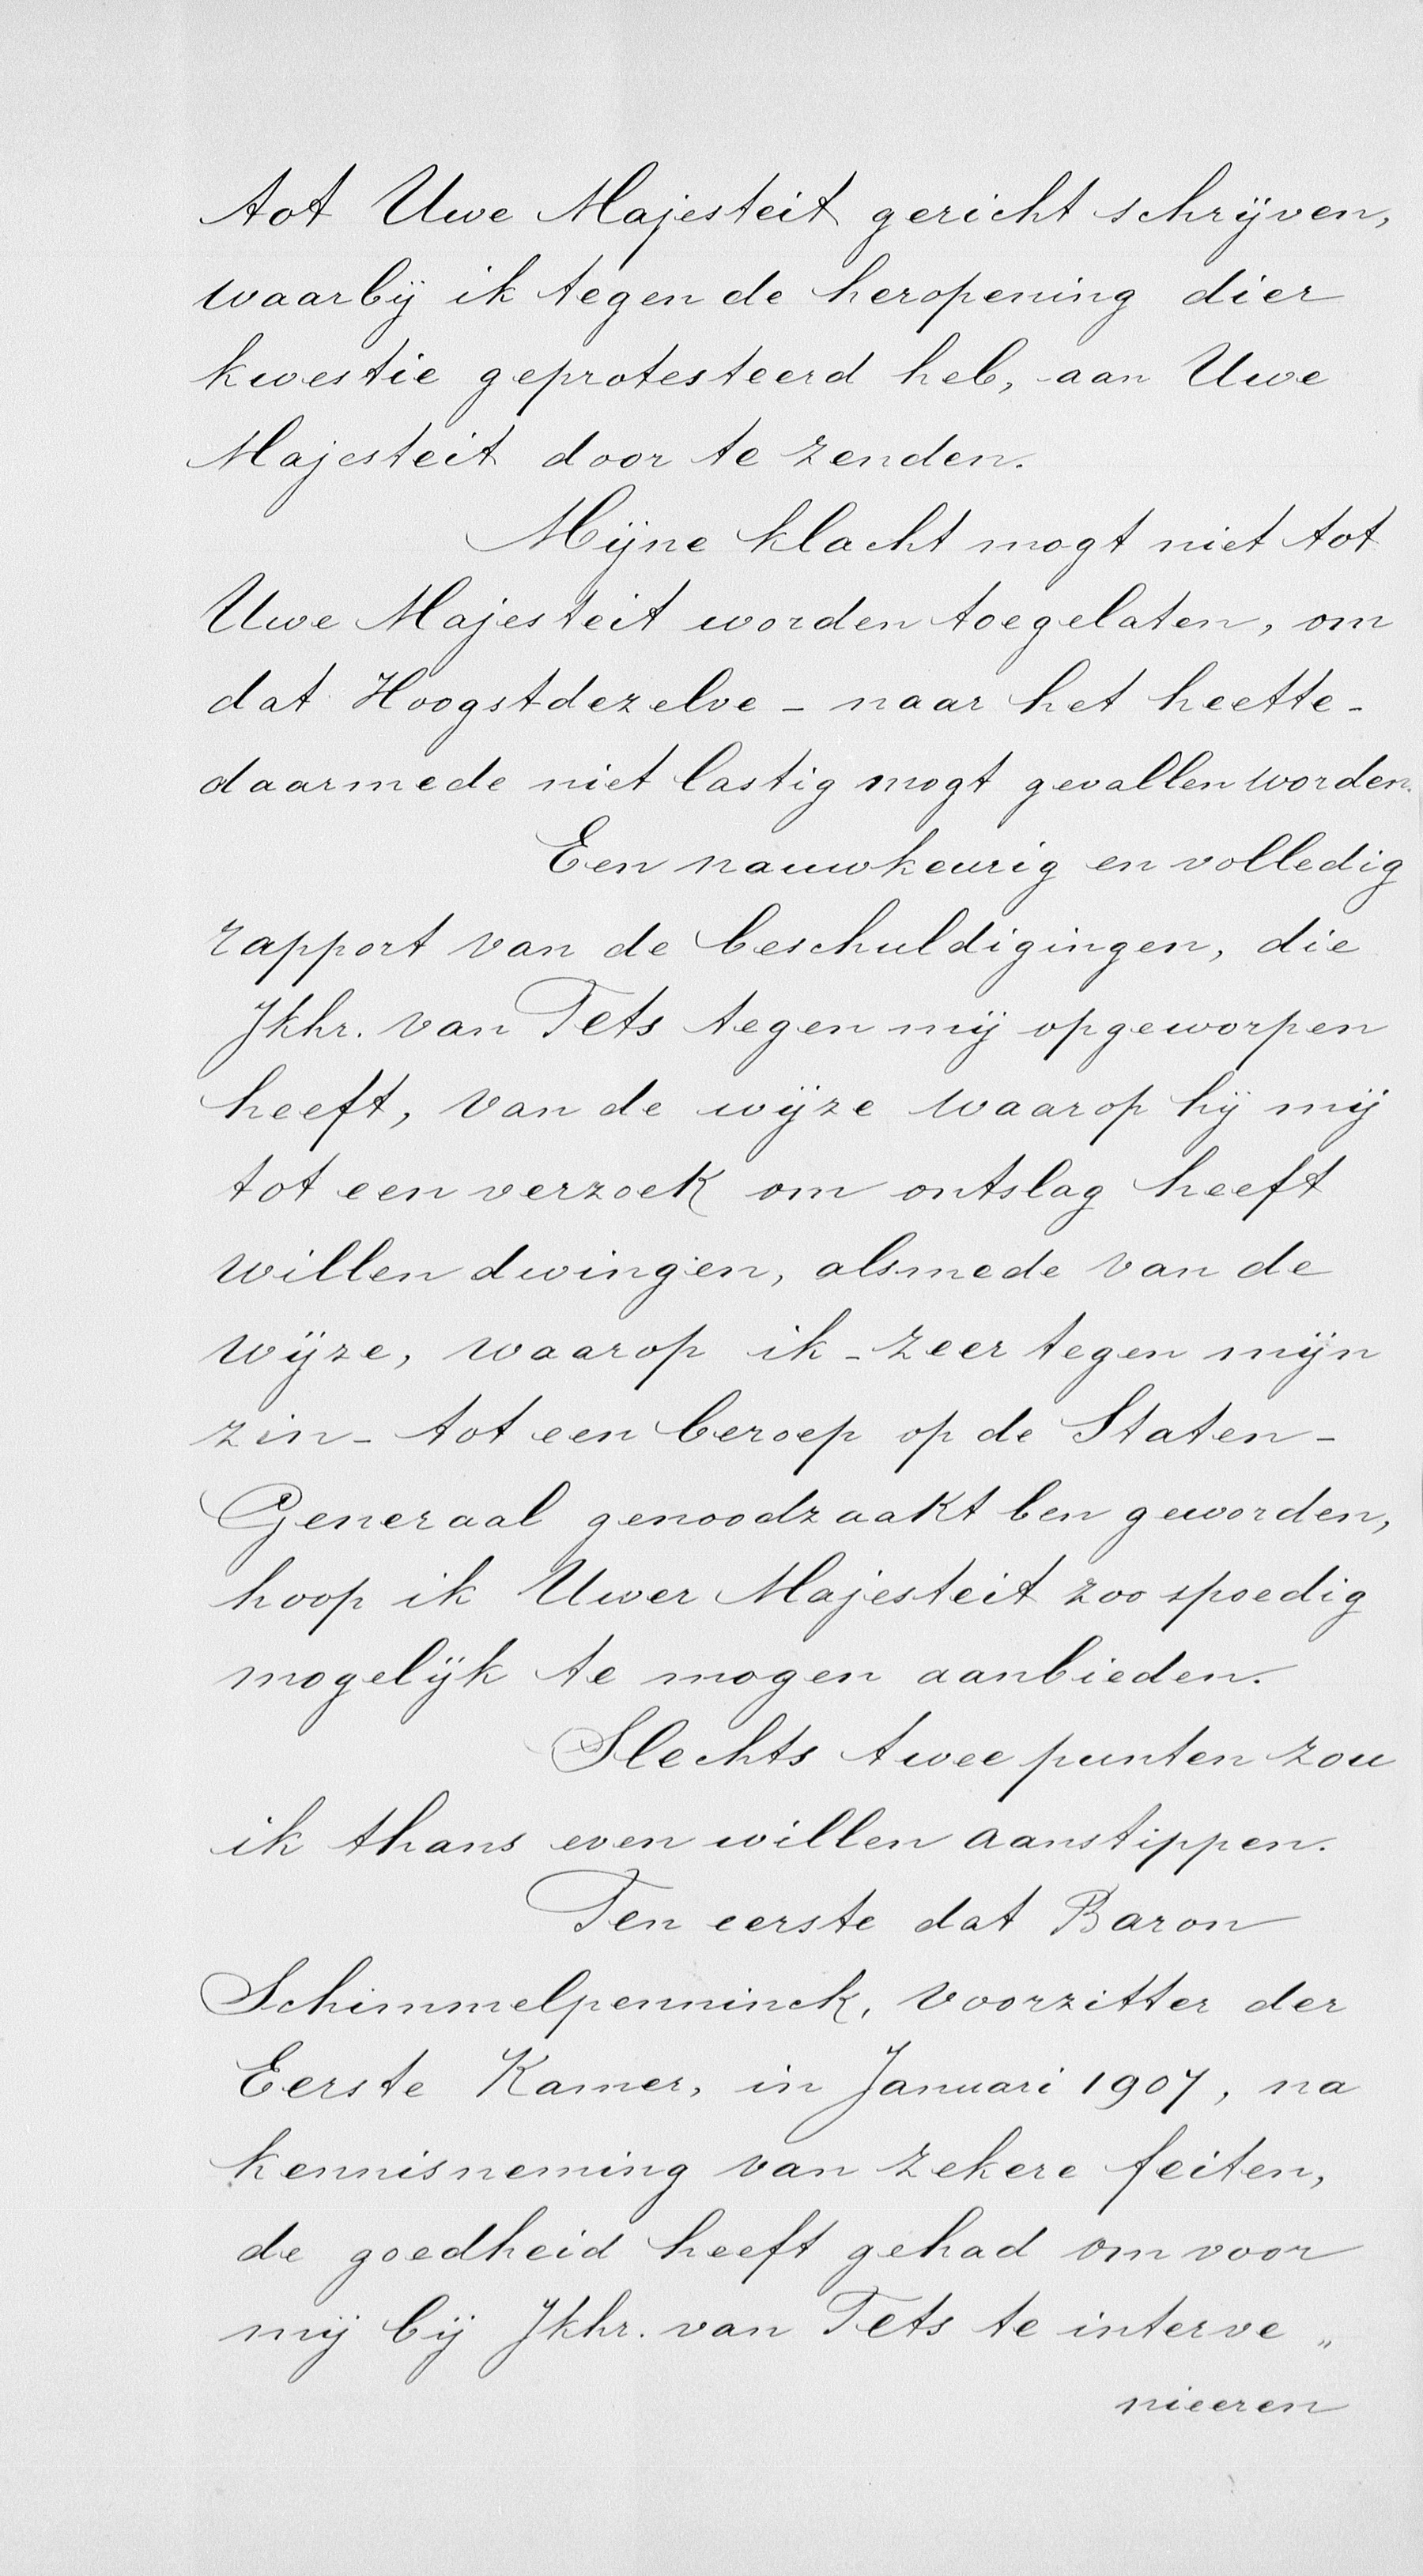 tot Uwe Majesteit gericht schrijven,
waarbij ik tegen de heropening dier
kwestie geprotesteerd heb, aan Uwe
Majesteit door te zenden.
Mijne klacht mogt niet tot
Uwe Majesteit worden toegelaten, om
dat Hoogstdezelve - naar het heette -
daarmede niet lastig mogt gevallen worden.
Een nauwkeurig en volledig
rapport van de beschuldigingen, die
Jkhr. van Tets tegen mij opgeworpen
heeft, van de wijze waarop hij mij
tot een verzoek om ontslag heeft
willen dwingen, alsmede van de
wijze, waarop ik - zeer tegen mijn
zin - tot een beroep op de Staten-
Generaal genoodzaakt ben geworden,
hoop ik Uwer Majesteit zoo spoedig
mogelijk te mogen aanbieden.
Slechts twee punten zou
ik thans even willen aanstippen.
Ten eerste dat Baron
Schimmelpenninck, voorzitter der
Eerste Kamer, in Januari 1907, na
kennisneming van zekere feiten,
de goedheid heeft gehad om voor
mij bij Jkhr. van Tets te interve„
nieeren